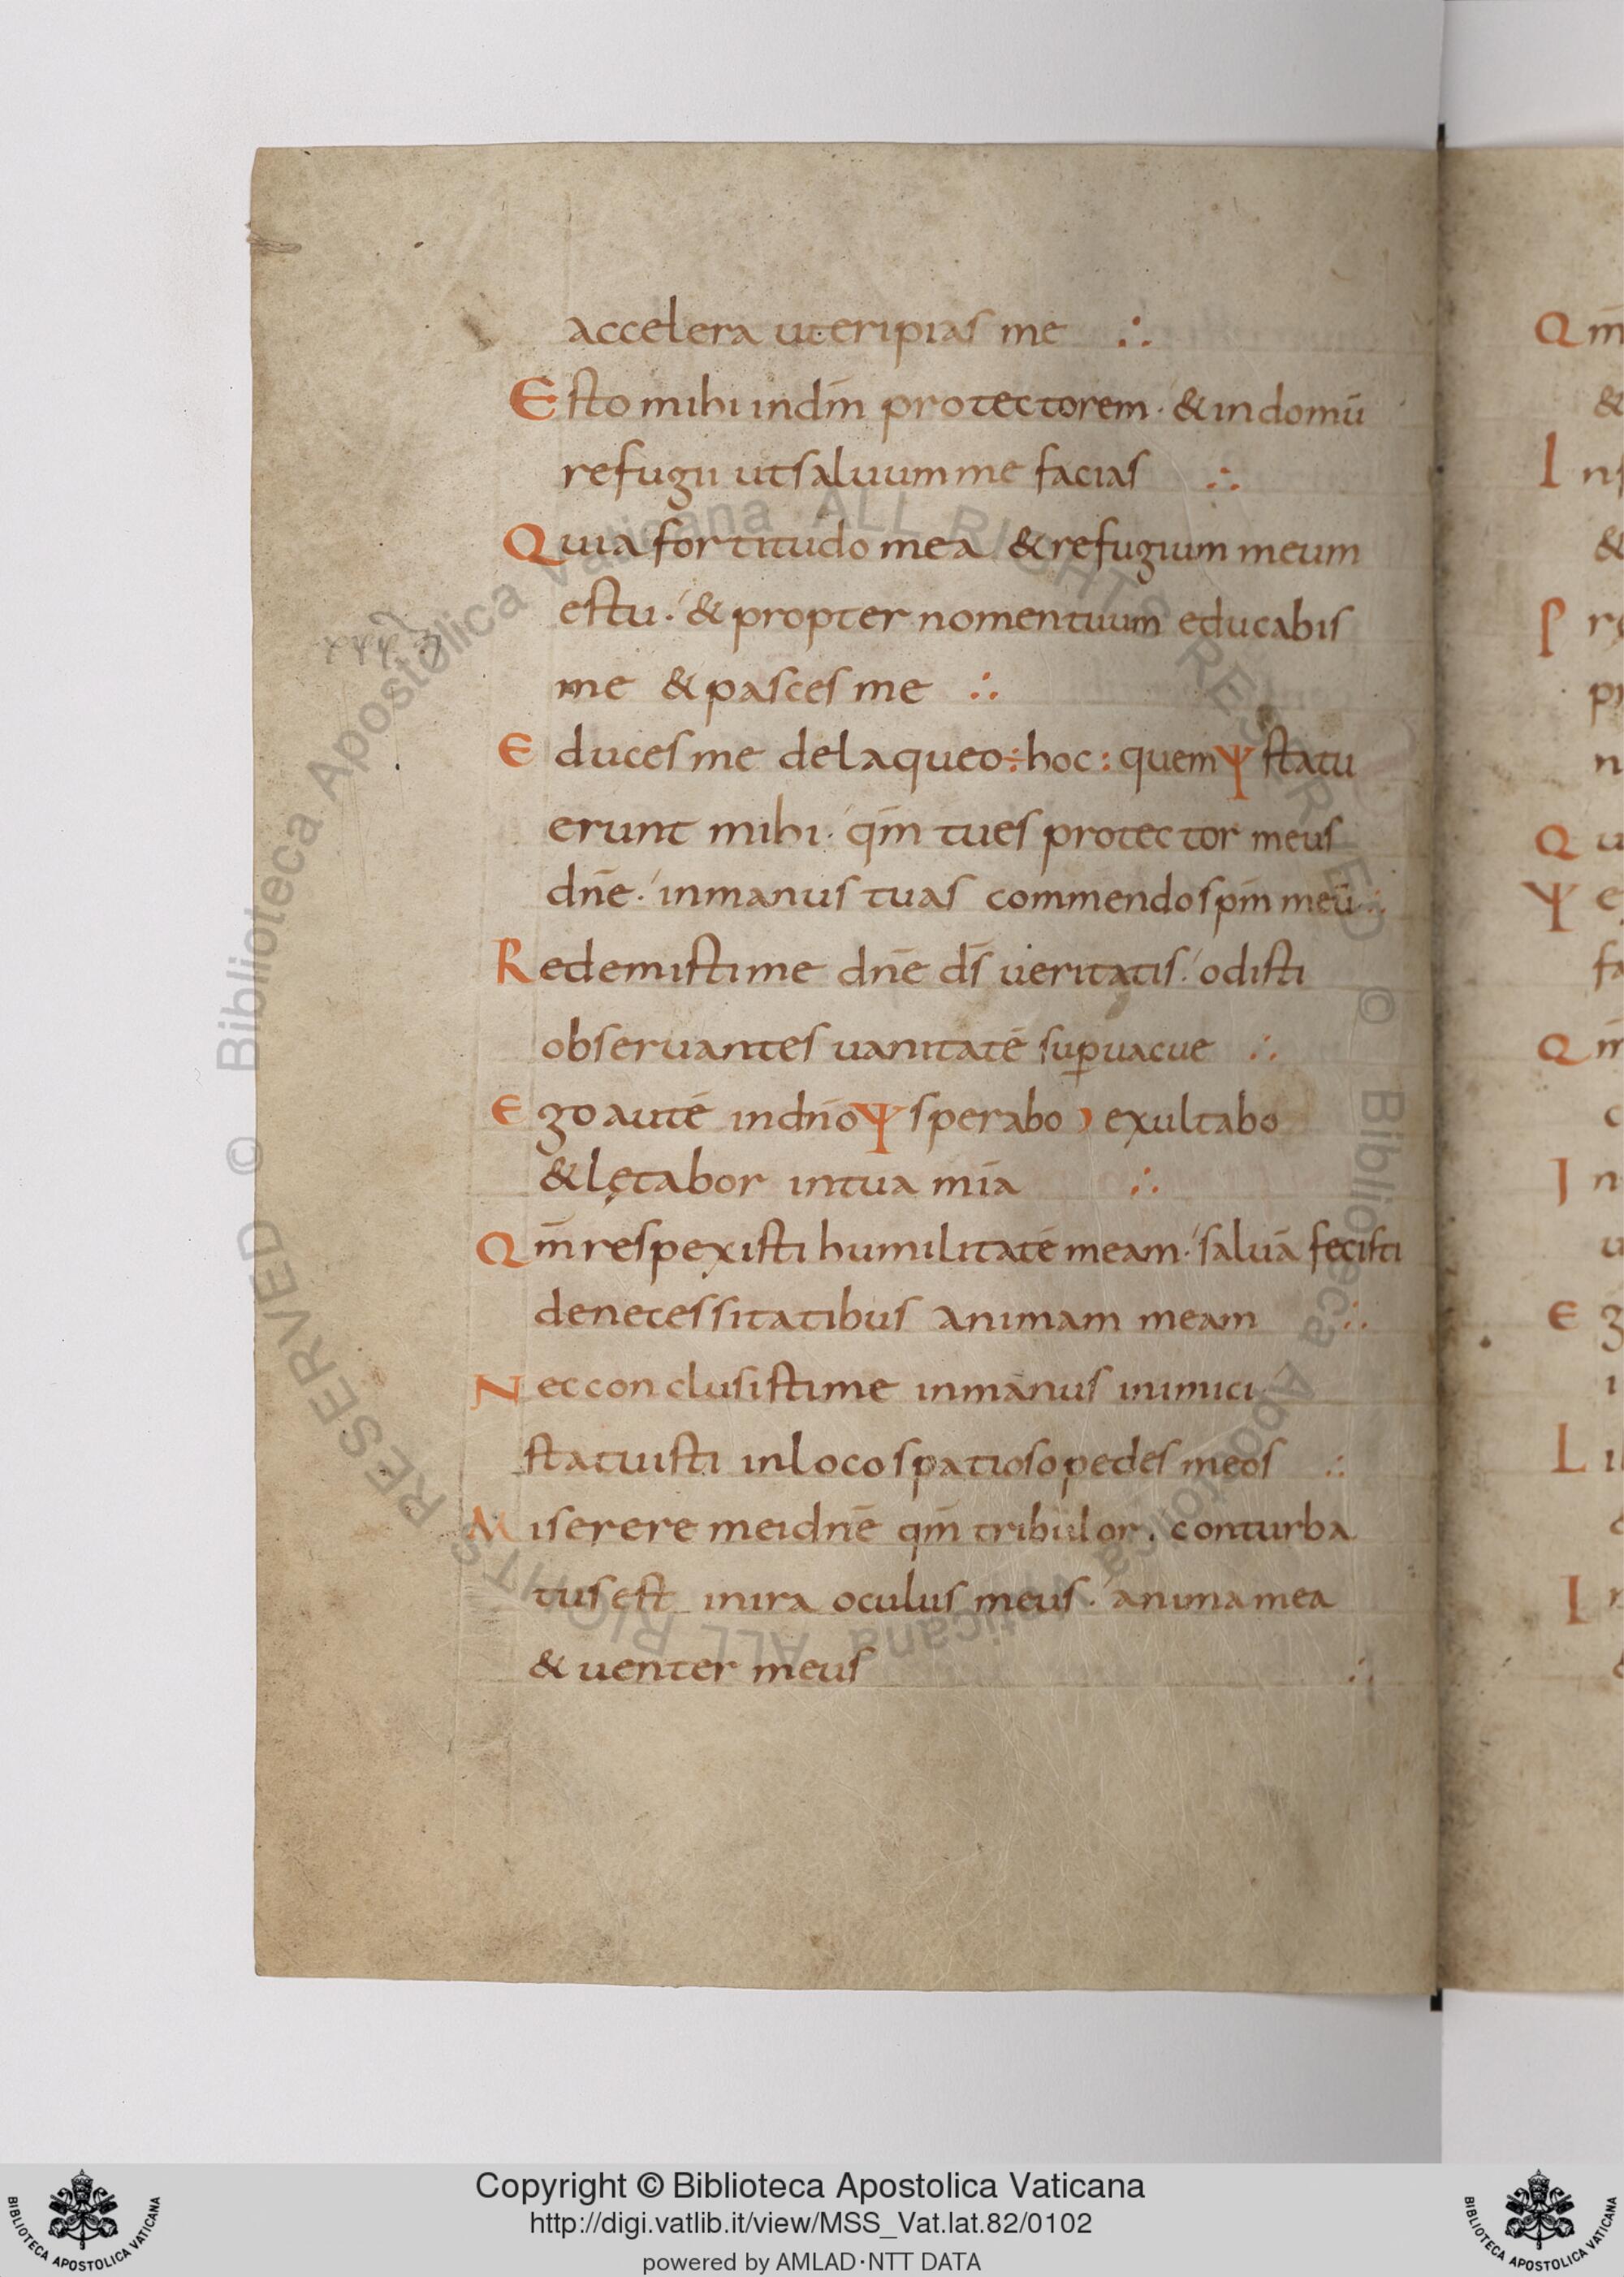 accelera uteripias me ∴
Esto mihi indm̄ protectorem · & in domū
refugii utsaluum me facias ∴
Quia fortitudo mea & refugium meum
estu · & propter nomentuum educabis
me & pasces me ∴
Educes me delaqueo ÷ hoc : quem Ψ statu
erunt mihi · qm̄ tues protector meus
dn̄e · inmanus tuas commendo spm̄ meū ∴
Redemistime dn̄e ds̄ ueritatis · odisti
obseruantes uanitatē sup̱uacue ∴
Ego autē indn̄o Ψ sperabo ) exultabo
& lętabor intua mīa ∴
Qm̄ respexisti humilitatē meam · saluā fecisti
denecessitatibus animam meam ∴
Nec conclusistime inmanus inimici
statuisti inloco spatioso pedes meos ∴
Miserere mei dn̄e qm̄ tribulor . conturba
tus est inira oculus meus · anima mea
& uenter meus ∴
© Biblioteca Apostolica Vaticana ALL RIGHTS RESERVED © Biblioteca Apostolica Vaticana ALL RIGHTS RESERVED
Copyright © Biblioteca Apostolica Vaticana
http://digi.vatlib.it/view/MSS_Vat.lat.82/0102
powered by AMLAD·NTT DATA
BIBLIOTECA APOSTOLICA VATICANA
BIBLIOTECA APOSTOLICA VATICANA